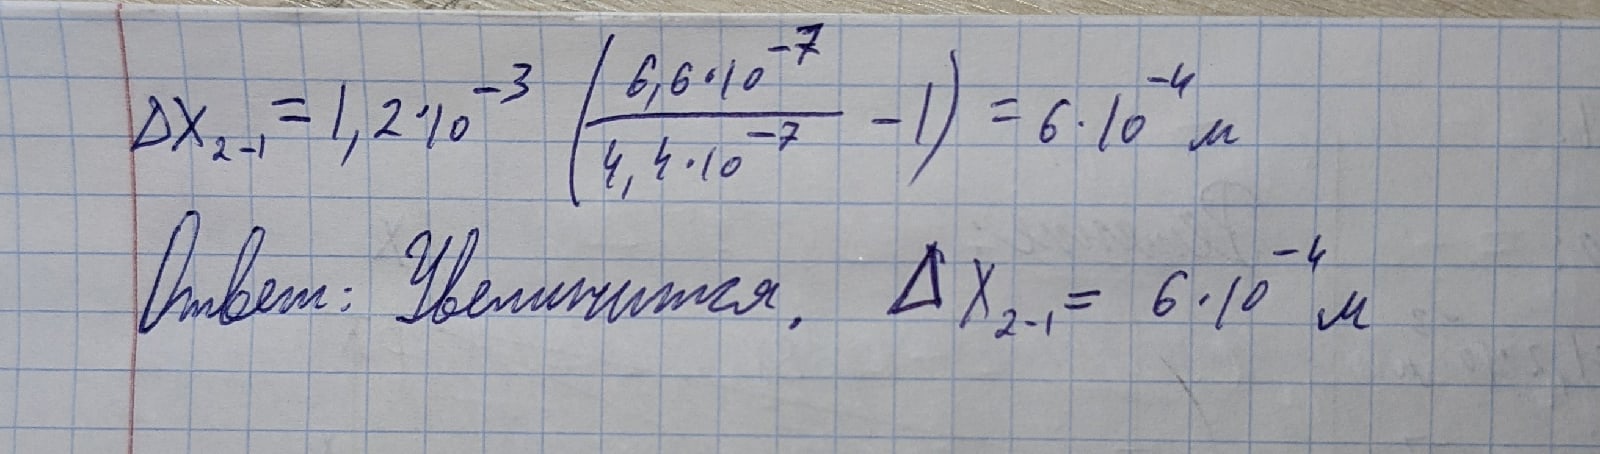 ΔX₂₋₁ = 1,2·10⁻³ (6,6·10⁻⁷ / 4,4·10⁻⁷ − 1) = 6·10⁻⁴ м
Ответ: Увеличится. ΔX₂₋₁ = 6·10⁻⁴ м